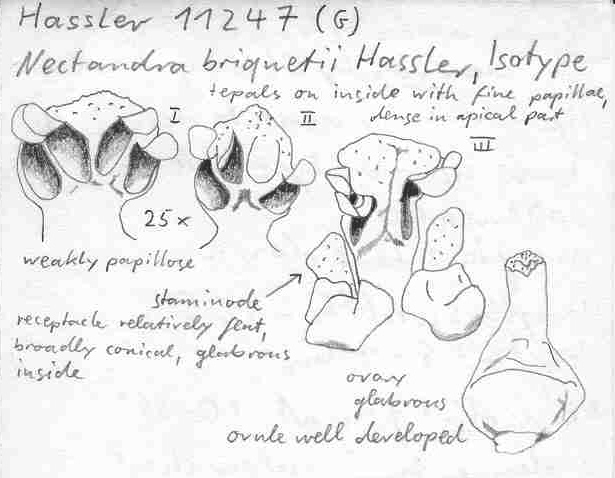 Hassler 11247 (G)
Nectandra briquetii Hassler, Isotype
tepals on inside with fine papillae,
dense in apical part
I
II
III
25x
weakly papillose
staminode
receptacle relatively flat,
broadly conical, glabrous
inside
ovary
glabrous
ovule well developed